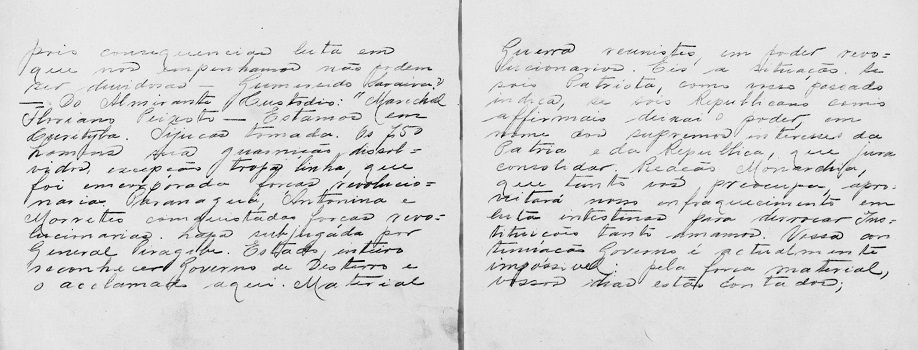 pois consequencias luta em
que nos empenhamos não podem
ser duvidosas — Gumercindo Saraiva."
— Do Almirante Custodio: "Marechal
Floriano Peixoto — Estamos em
Corityba. Tijucas tomada. Os 750
homens sua guarnição dissol-
vidos, excepção tropa linha, que
foi encorporada forças revolucio=
narias. Paranaguá, Antonina e
Morretes conquistadas forças revo-
lucionarias. Lapa subjugada por
General Piragibe. Estado inteiro
reconhecer Governo de Desterro e
o acclamado aqui. Material
Guerra reunistes, em poder revo-
lucionarios. Eis, a situação. Se
sois Patriota, como vosso passado
indica, se sois Republicano como
affirmais deixai o poder, em
nome dos supremos interesses da
Patria e da Republica, que jura
consolidar. Reacção Monarchica,
que tanto vos preocupa, apro-
veitará nosso enfraquecimento em
luta intestinas para derrocar Ins-
tituições tanto amamos. Vossa con
tinuação Governo é actualmente
impossivel: pela força material,
vossos dias estão contados;